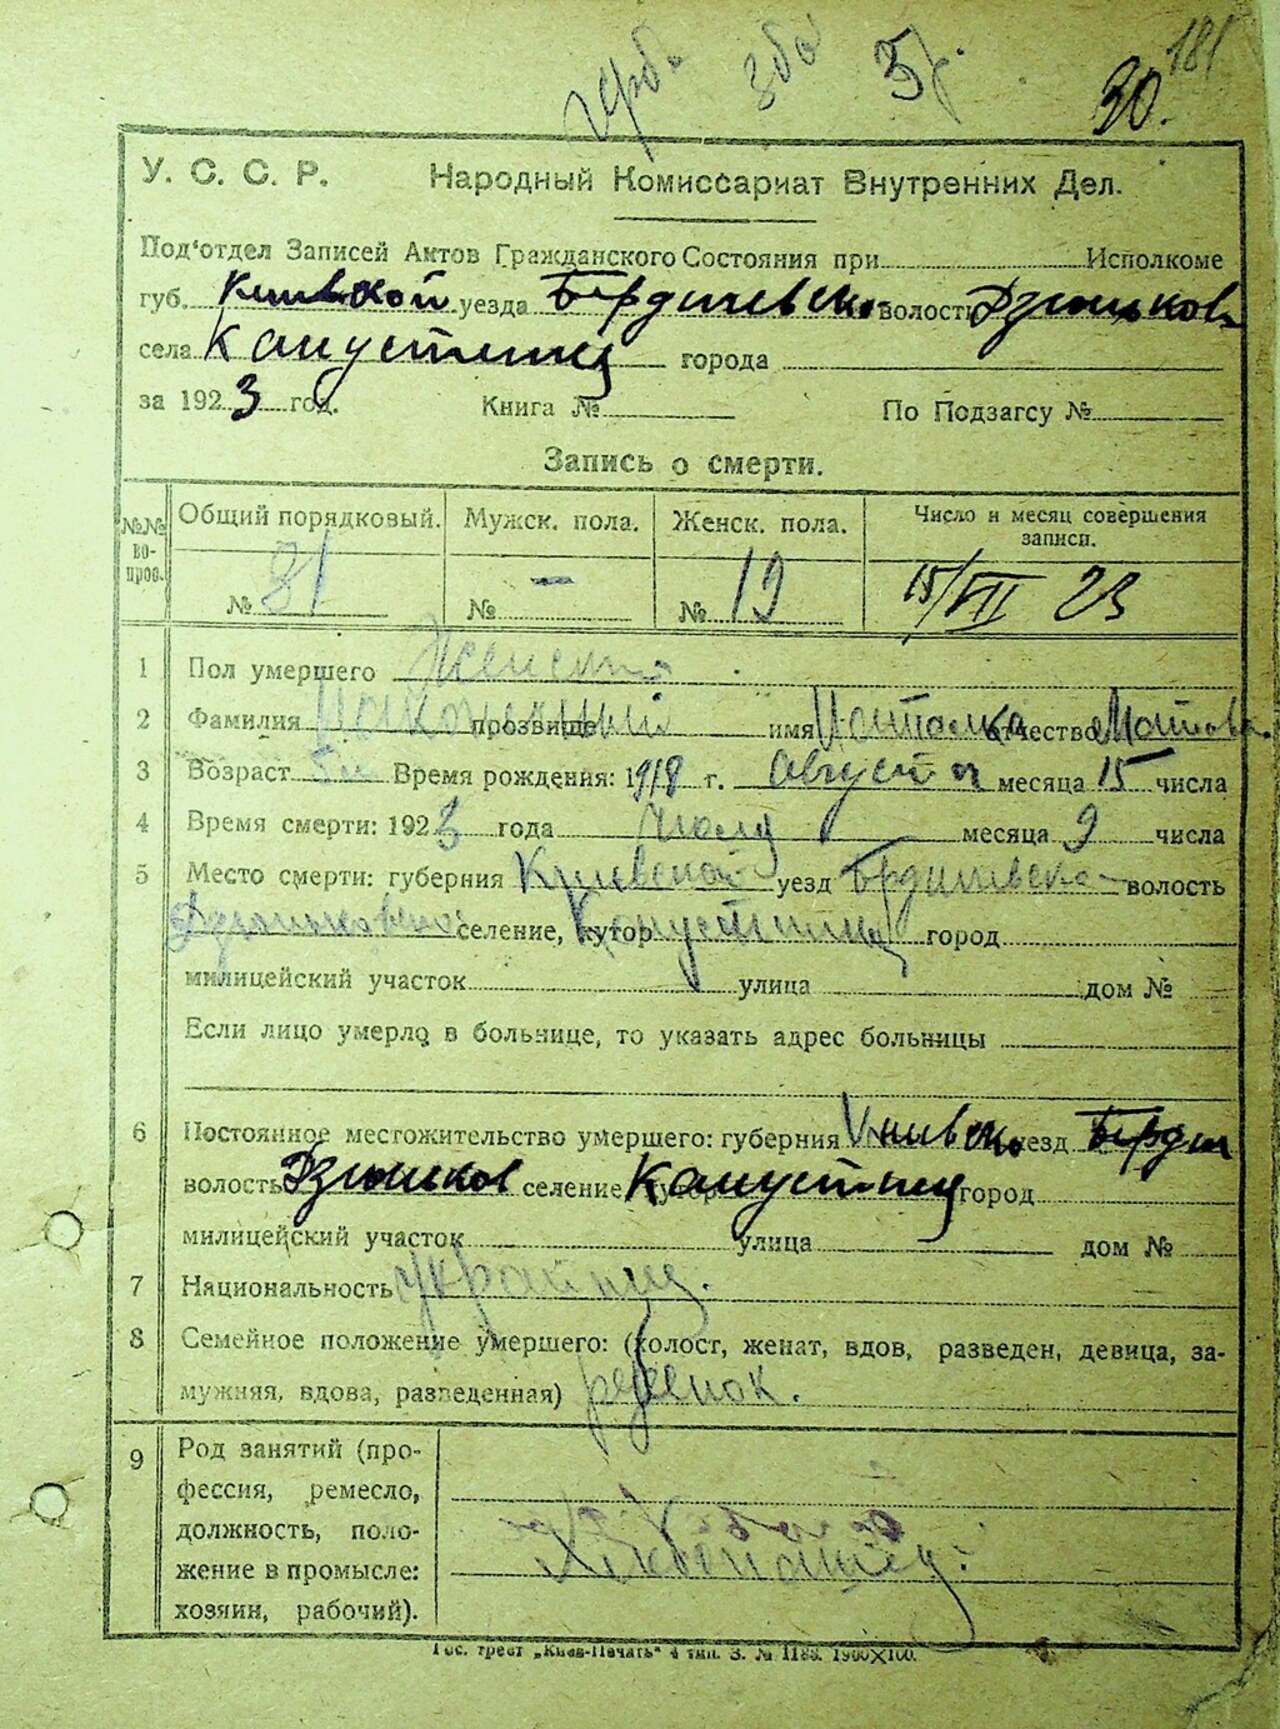 181
5
30.
У. С. С. Р. Народный Комиссариат Внутренних Дел.
Под‘отдел Записей Актов Гражданского Состояния при Исполкоме
губ. Киевской уезда Бердичевско волость Дзюньков
села Капустинці города
за 1923 год. Книга № По Подзагсу №
Запись о смерти.
№№ во-прос. Общий порядковый. Мужск. пола. Женск. пола. Число и месяц совершения записи.
№ 31 № – № 19 15/VII 23
1 Пол умершего Женск
2 Фамилия прозвище имя Наталка отчество
3 Возраст 5 Время рождения: 1918 г. Августа месяца 15 числа
4 Время смерти: 1923 года месяца 9 числа
5 Место смерти: губерния Киевской уезд Бердичевско волость
селение, хутор Капустинці город
милицейский участок улица дом №
Если лицо умерло в больнице, то указать адрес больницы
6 Постоянное местожительство умершего: губерния Киевско уезд Бердич
волость Дзюньков селение хутор Капустинці город
милицейский участок улица дом №
7 Национальность Українці.
8 Семейное положение умершего: (холост, женат, вдов, разведен, девица, за-
мужняя, вдова, разведенная) ребенок.
9 Род занятий (про-
фессия, ремесло,
должность, поло-
жение в промысле:
хозяин, рабочий).
Хлебопашец.
Гос. трест „Киев-Печать“ 4 тип. З. № 1188. 1900X100.